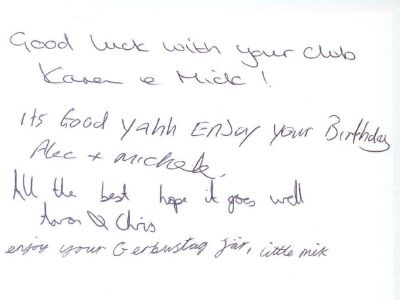 Good luck with your club
Karen & Mick!
Its Good yahh Enjoy your Birthday
Alec + Michele.
All the best hope it goes well
& Chris
enjoy your Gerbustag jär, little mik